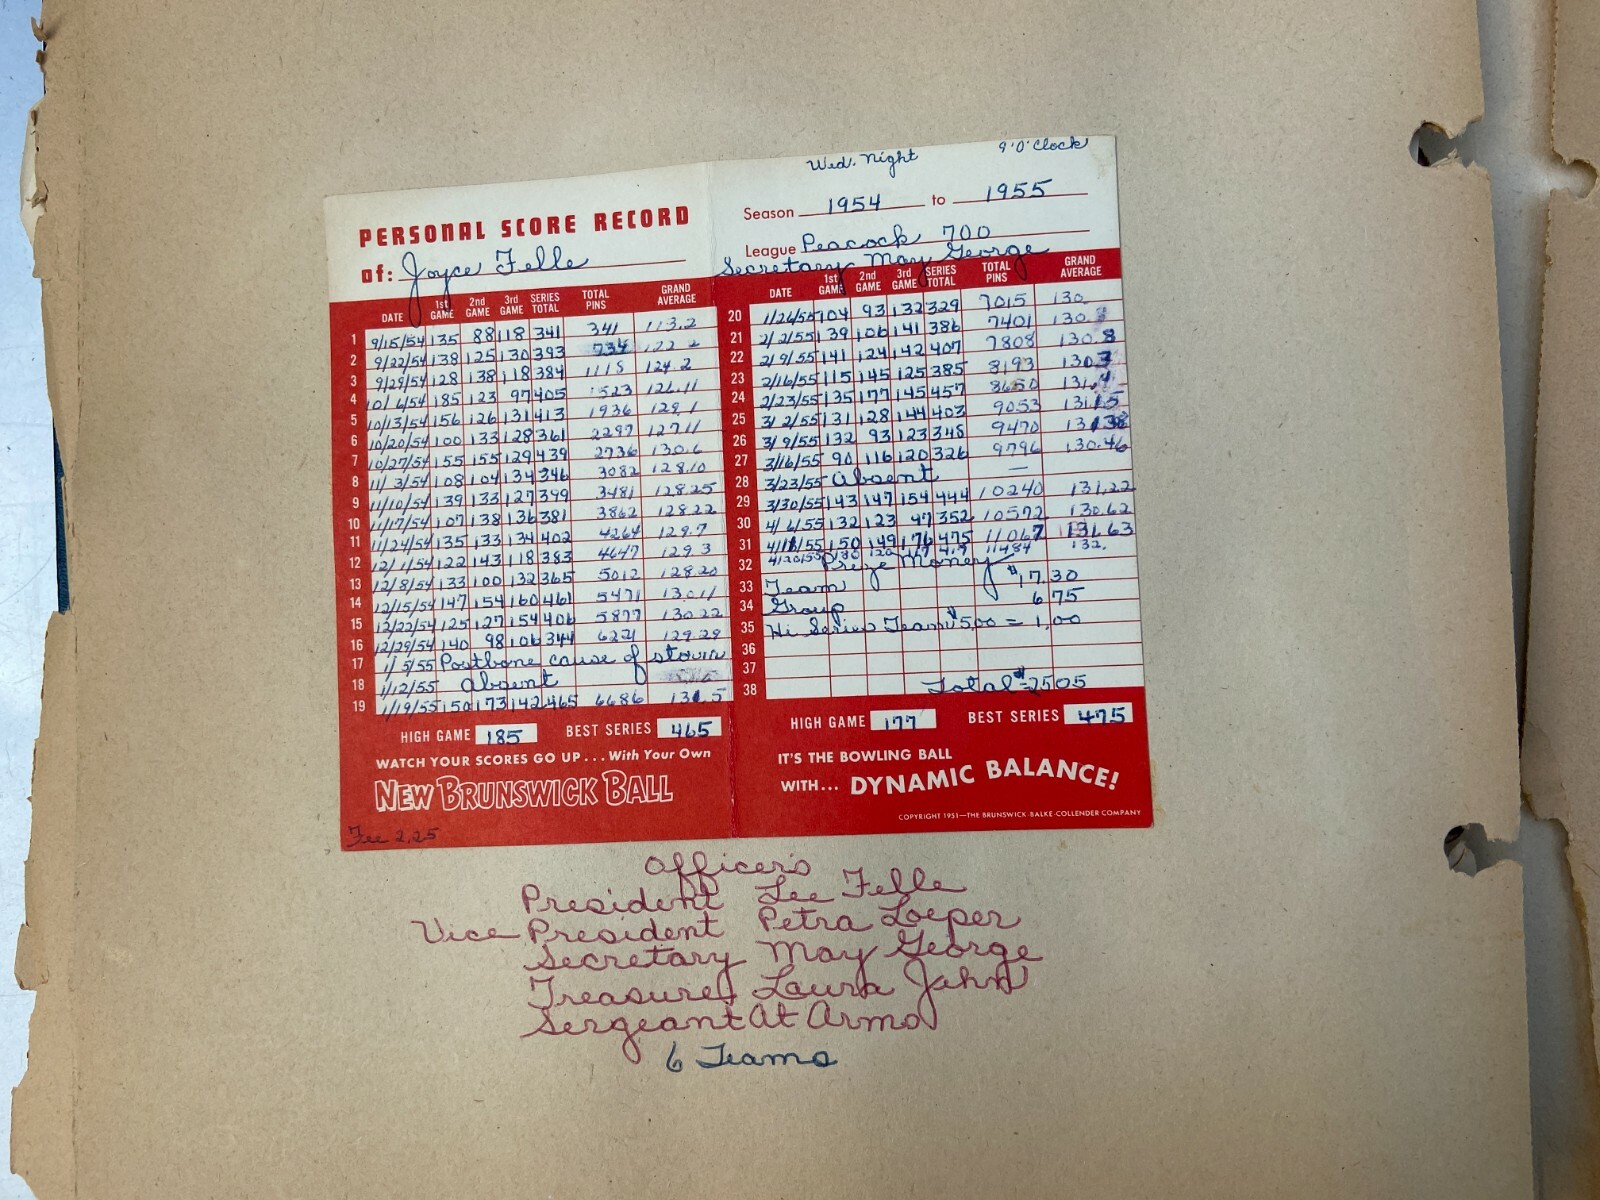 Wed. Night 9.0'Clock
PERSONAL SCORE RECORD
of: Joyce Felle
DATE 1st GAME 2nd GAME 3rd GAME SERIES TOTAL TOTAL PINS GRAND AVERAGE
1 9/15/54 135 88 118 341 341 113.2
2 9/22/54 138 125 130 393 734 122.2
3 9/29/54 128 138 118 384 1118 124.2
4 10/6/54 185 123 97 405 1523 126.11
5 10/13/54 156 126 131 413 1936 129.1
6 10/20/54 100 133 128 361 2297 127.11
7 10/27/54 155 155 129 439 2736 130.6
8 11/3/54 108 104 134 346 3082 128.10
9 11/10/54 139 133 127 399 3481 128.25
10 11/17/54 107 138 136 381 3862 128.22
11 11/24/54 135 133 134 402 4264 129.7
12 12/1/54 122 143 118 383 4647 129.3
13 12/8/54 133 100 132 365 5012 128.20
14 12/15/54 147 154 160 461 5471 130.11
15 12/22/54 125 127 154 406 5877 130.22
16 12/29/54 140 98 106 344 6221 129.29
17 1/5/55 Postpone cause of storm
18 1/12/55 Absent
19 1/19/55 150 173 142 465 6686 131.5
HIGH GAME 185 BEST SERIES 465
WATCH YOUR SCORES GO UP... With Your Own
NEW BRUNSWICK BALL
Fee 2.25
Season 1954 to 1955
League Peacock 700
Secretary May George
DATE 1st GAME 2nd GAME 3rd GAME SERIES TOTAL TOTAL PINS GRAND AVERAGE
20 1/26/55 104 93 132 329 7015 130
21 2/2/55 139 106 141 386 7401 130.
22 2/9/55 141 124 142 407 7808 130.8
23 2/16/55 115 145 125 385 8193 130.
24 2/23/55 135 177 145 457 8650 131.4
25 3/2/55 131 128 144 403 9053 131.
26 3/9/55 132 93 123 348 9470
27 3/16/55 90 116 120 326 9796 130.46
28 3/23/55 Absent —
29 3/30/55 143 147 154 444 10240 131.22
30 4/6/55 132 123 97 352 10592 130.62
31 150 149 176 475 11067 131.63
4/20/55 11484 132.
32 Prize Money
33 Team $17.30
34 Group 6 75
35 Hi Series Team $5.00 = 1.00
36
37
38 Total $2505
HIGH GAME 177 BEST SERIES 475
IT'S THE BOWLING BALL
WITH... DYNAMIC BALANCE!
COPYRIGHT 1951—THE BRUNSWICK-BALKE COLLENDER COMPANY
Officer's
President Lee Felle
Vice President Petra Loeper
Secretary May George
Treasurer Laura Jahn
Sergeant At Arms
6 Teams